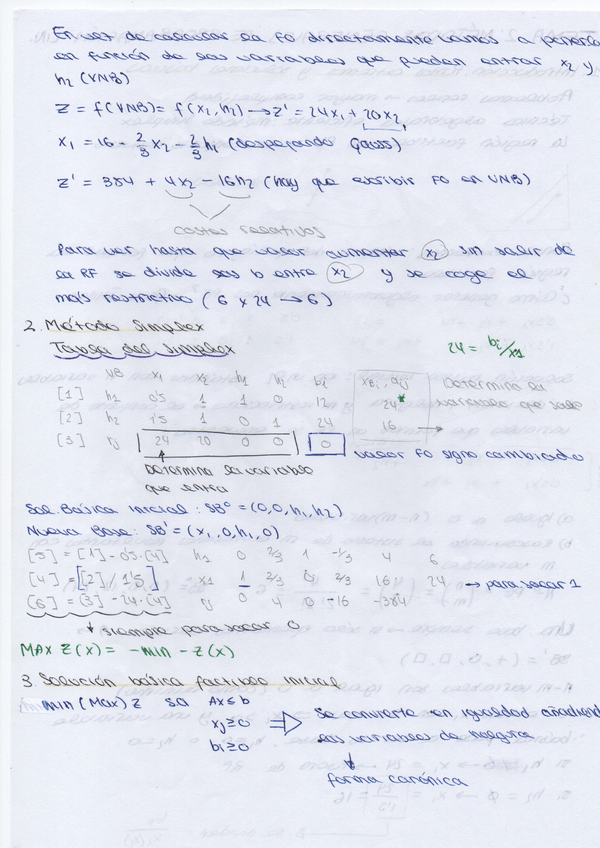 En vez de calcular la FO directamente vamos a ponerla
en función de las variables que puedan entrar x2 y
h2 (VNB)
Z = f(VNB) = f(x2, h2) → Z' = 24x1 + 20x2
x1 = 16 - 2/3 x2 - 2/3 h2 (despejando Gauss)
Z' = 384 + 4x2 - 16h2 (hay que escribir FO en VNB)
costes relativos
Para ver hasta que valor aumentar x2 sin salir de
la RF se divide las b entre x2 y se coge el
más restrictivo (6 y 24 → 6)
2. Método Simplex
Tabla del Simplex
24 = bi/x1
VB x1 x2 h1 h2 bi xBi, aij
[1] h1 0'5 1 1 0 12 24*
[2] h2 1'5 1 0 1 24 16 →
[3] 24 20 0 0 0
Determina la
variable que sale
valor FO signo cambiado
Determina la variable
que entra
Sol. Básica inicial: SB⁰ = (0,0,h1,h2)
Nueva Base: SB' = (x1,0,h1,0)
[5] = [1] - 0'5·[4] h1 0 2/3 1 -1/3 4 6
[4] = [2] / 1'5 x1 1 2/3 0 2/3 16 24 → para sacar 1
[6] = [3] - 24·[4] 0 4 0 -16 -384
↓ siempre para sacar 0
MAX Z(x) = -MIN - Z(x)
3. Solución básica factible inicial
min (Max) Z sa Ax ≤ b
xj ≥ 0
bi ≥ 0
⇒ Se convierte en igualdad añadiendo
las variables de holgura
↓
forma canónica